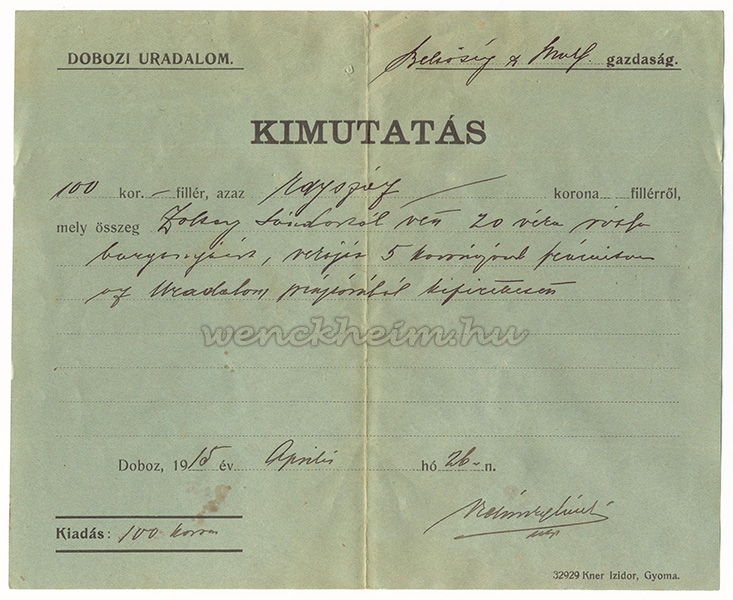 DOBOZI URADALOM. Belsőség & gazdaság.
KIMUTATÁS
100 kor. – fillér, azaz Egyszáz korona fillérről,
mely összeg Sándortól vett 20 véka rózsa
burgonyáért, vékáját 5 koronájával számítva
az Uradalom kifizettetett
wenckheim.hu
Doboz, 1915 év Április hó 26-n.
Kiadás: 100 korona
32929 Kner Izidor, Gyoma.